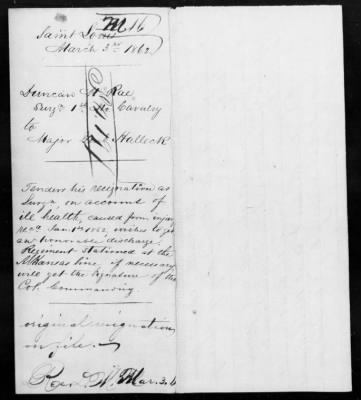 M 16
Saint Louis
March 3rd 1862
Duncan McRae
Surgn 1st Mo Cavalry
to
Major Halleck
Tenders his resignation as
Surgn, on account of
ill health, caused from injury
recd. Jan. 1st 1862, wishes to get
an honorable discharge.
Regiment stationed at the
Arkansas line, if necessary
will get the signature of the
Col. Commanding.
original resignation
on file.
Mar. 3.